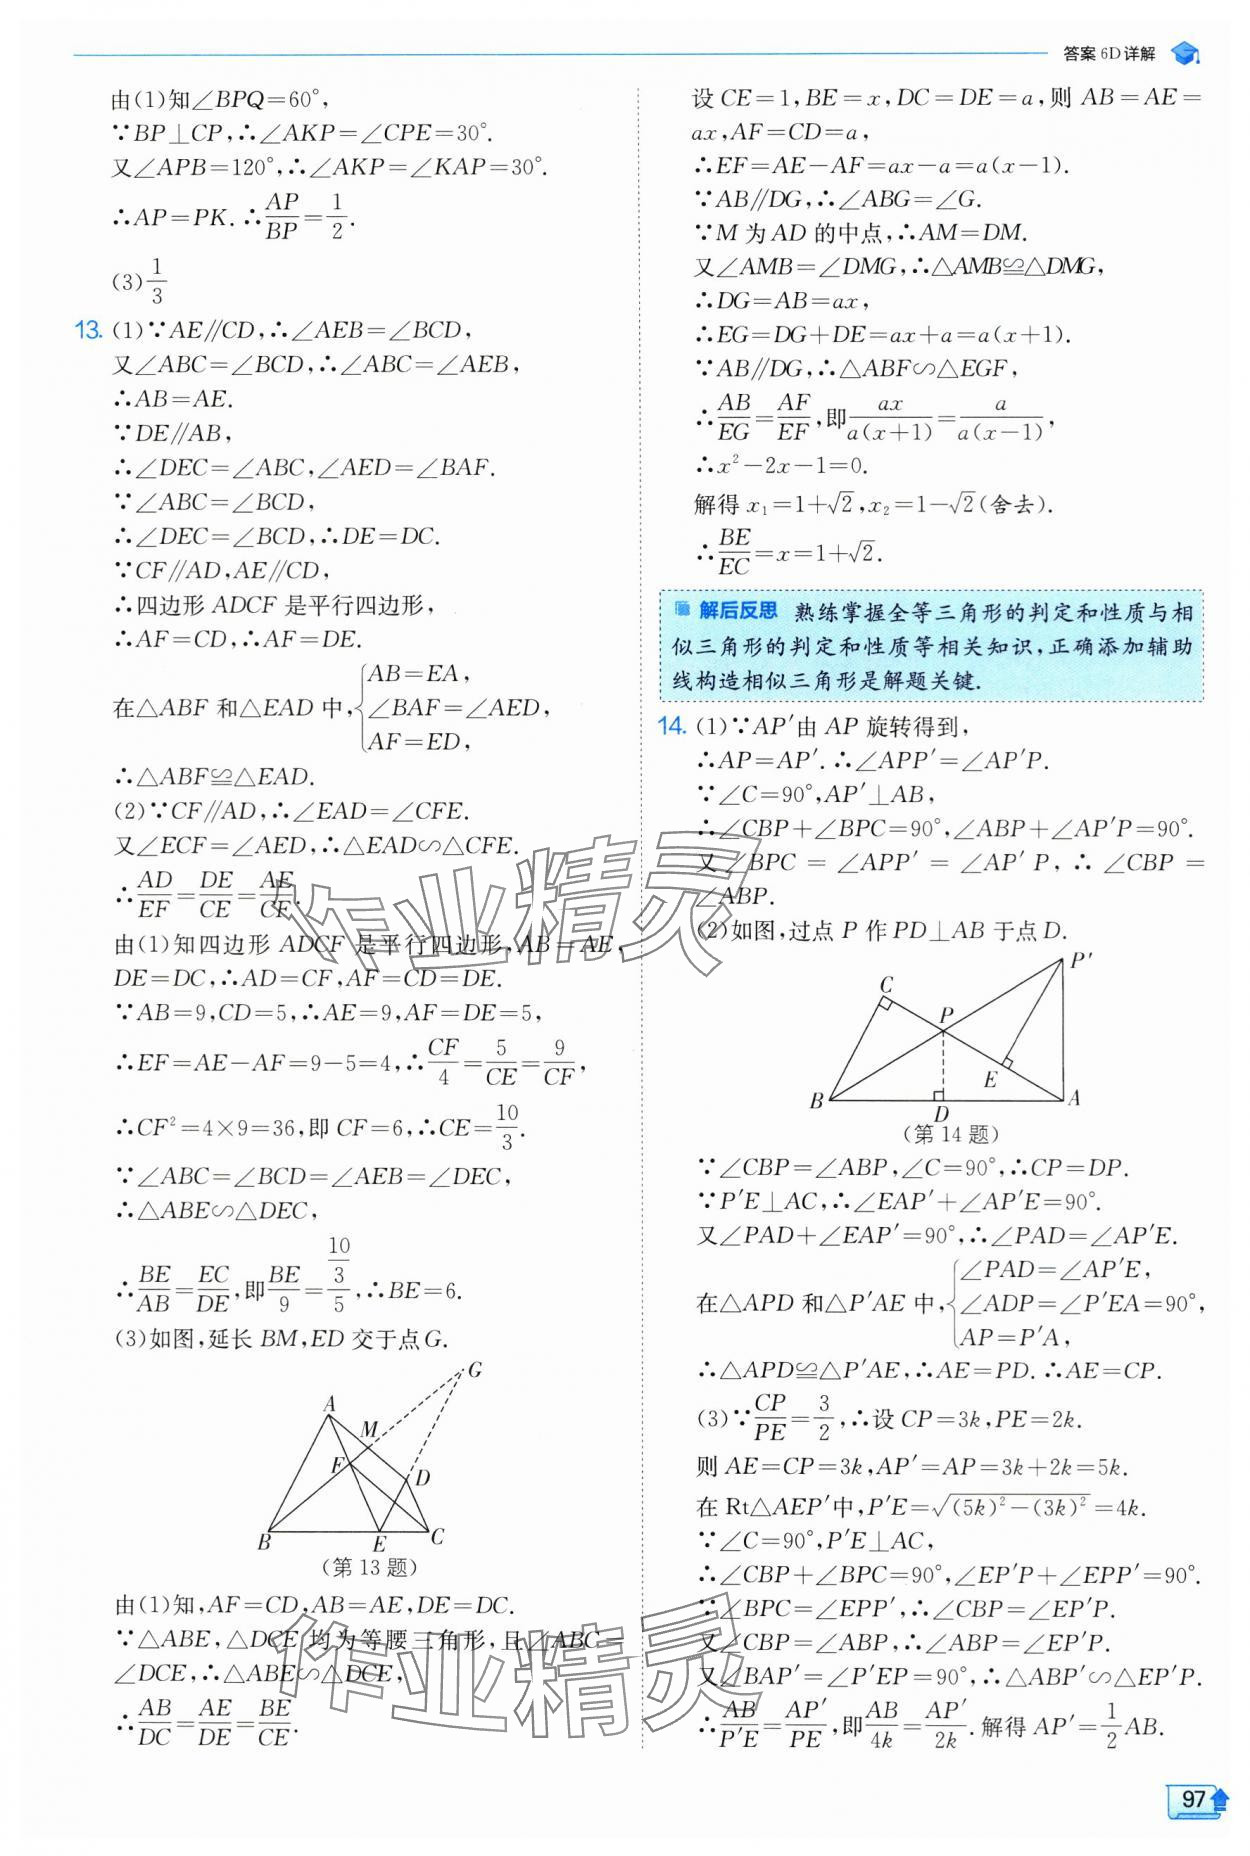 答案 6D详解
由(1)知∠BPQ=60°,
∵BP⊥CP,∴∠AKP=∠CPE=30°.
又∠APB=120°,∴∠AKP=∠KAP=30°.
∴AP=PK.∴AP/BP=1/2.
(3)1/3
13. (1)∵AE∥CD,∴∠AEB=∠BCD,
又∠ABC=∠BCD,∴∠ABC=∠AEB,
∴AB=AE.
∵DE∥AB,
∴∠DEC=∠ABC,∠AED=∠BAF.
∵∠ABC=∠BCD,
∴∠DEC=∠BCD,∴DE=DC.
∵CF∥AD,AE∥CD,
∴四边形 ADCF 是平行四边形,
∴AF=CD,∴AF=DE.
在△ABF 和△EAD 中,{AB=EA,
∠BAF=∠AED,
AF=ED,
∴△ABF≌△EAD.
(2)∵CF∥AD,∴∠EAD=∠CFE.
又∠ECF=∠AED,∴△EAD∽△CFE.
∴AD/EF=DE/CE=AE/CF.
由(1)知四边形 ADCF 是平行四边形,AB=AE,
DE=DC,∴AD=CF,AF=CD=DE.
∵AB=9,CD=5,∴AE=9,AF=DE=5,
∴EF=AE−AF=9−5=4,∴CF/4=5/CE=9/CF,
∴CF²=4×9=36,即 CF=6,∴CE=10/3.
∵∠ABC=∠BCD=∠AEB=∠DEC,
∴△ABE∽△DEC,
∴BE/AB=EC/DE,即BE/9=(10/3)/5,∴BE=6.
(3)如图,延长 BM,ED 交于点G.
G
A
M
F
D
B
E
C
(第13题)
由(1)知,AF=CD,AB=AE,DE=DC.
∵△ABE,△DCE 均为等腰三角形,且∠ABC=
∠DCE,∴△ABE∽△DCE,
∴AB/DC=AE/DE=BE/CE.
设 CE=1,BE=x,DC=DE=a,则 AB=AE=
ax,AF=CD=a,
∴EF=AE−AF=ax−a=a(x−1).
∵AB∥DG,∴∠ABG=∠G.
∵M 为 AD 的中点,∴AM=DM.
又∠AMB=∠DMG,∴△AMB≌△DMG,
∴DG=AB=ax,
∴EG=DG+DE=ax+a=a(x+1).
∵AB∥DG,∴△ABF∽△EGF,
∴AB/EG=AF/EF,即ax/a(x+1)=a/a(x−1),
∴x²−2x−1=0.
解得 x₁=1+√2,x₂=1−√2(舍去).
∴BE/EC=x=1+√2.
解后反思 熟练掌握全等三角形的判定和性质与相
似三角形的判定和性质等相关知识,正确添加辅助
线构造相似三角形是解题关键.
14. (1)∵AP′由 AP 旋转得到,
∴AP=AP′.∴∠APP′=∠AP′P.
∵∠C=90°,AP′⊥AB,
∴∠CBP+∠BPC=90°,∠ABP+∠AP′P=90°.
又∠BPC=∠APP′=∠AP′P,∴∠CBP=
∠ABP.
(2)如图,过点 P 作 PD⊥AB 于点 D.
P′
C
P
E
B
D
A
(第14题)
∵∠CBP=∠ABP,∠C=90°,∴CP=DP.
∵P′E⊥AC,∴∠EAP′+∠AP′E=90°.
又∠PAD+∠EAP′=90°,∴∠PAD=∠AP′E.
在△APD 和△P′AE 中,{∠PAD=∠AP′E,
∠ADP=∠P′EA=90°,
AP=P′A,
∴△APD≌△P′AE,∴AE=PD.∴AE=CP.
(3)∵CP/PE=3/2,∴设 CP=3k,PE=2k.
则 AE=CP=3k,AP′=AP=3k+2k=5k.
在 Rt△AEP′中,P′E=√((5k)²−(3k)²)=4k.
∵∠C=90°,P′E⊥AC,
∴∠CBP+∠BPC=90°,∠EP′P+∠EPP′=90°.
∵∠BPC=∠EPP′,∴∠CBP=∠EP′P.
又∠CBP=∠ABP,∴∠ABP=∠EP′P.
又∠BAP′=∠P′EP=90°,∴△ABP′∽△EP′P.
∴AB/P′E=AP′/PE,即AB/4k=AP′/2k.解得 AP′=1/2AB.
97
作业精灵
作业精灵